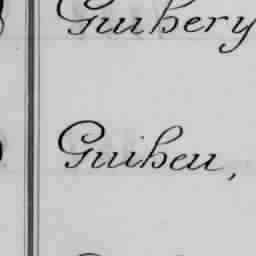 Guihery
Guiheu,